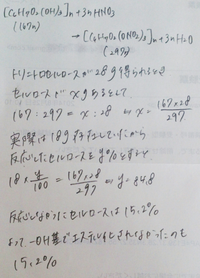 [C₆H₇O₂(OH)₃]n + 3nHNO₃
(162n)
→ [C₆H₇O₂(ONO₂)₃]n + 3nH₂O
(297n)
トリニトロセルロースが28g得られるとき
セルロースがxgあるとして
162 : 297 = x : 28 ⇔ x = 162×28/297
実際は18g存在していたから
反応したセルロースをy%とすると
18 × y/100 = 162×28/297 ⇔ y = 84.8
反応しなかったセルロースは15.2%
よって-OH基でエステル化されなかったのも
15.2%